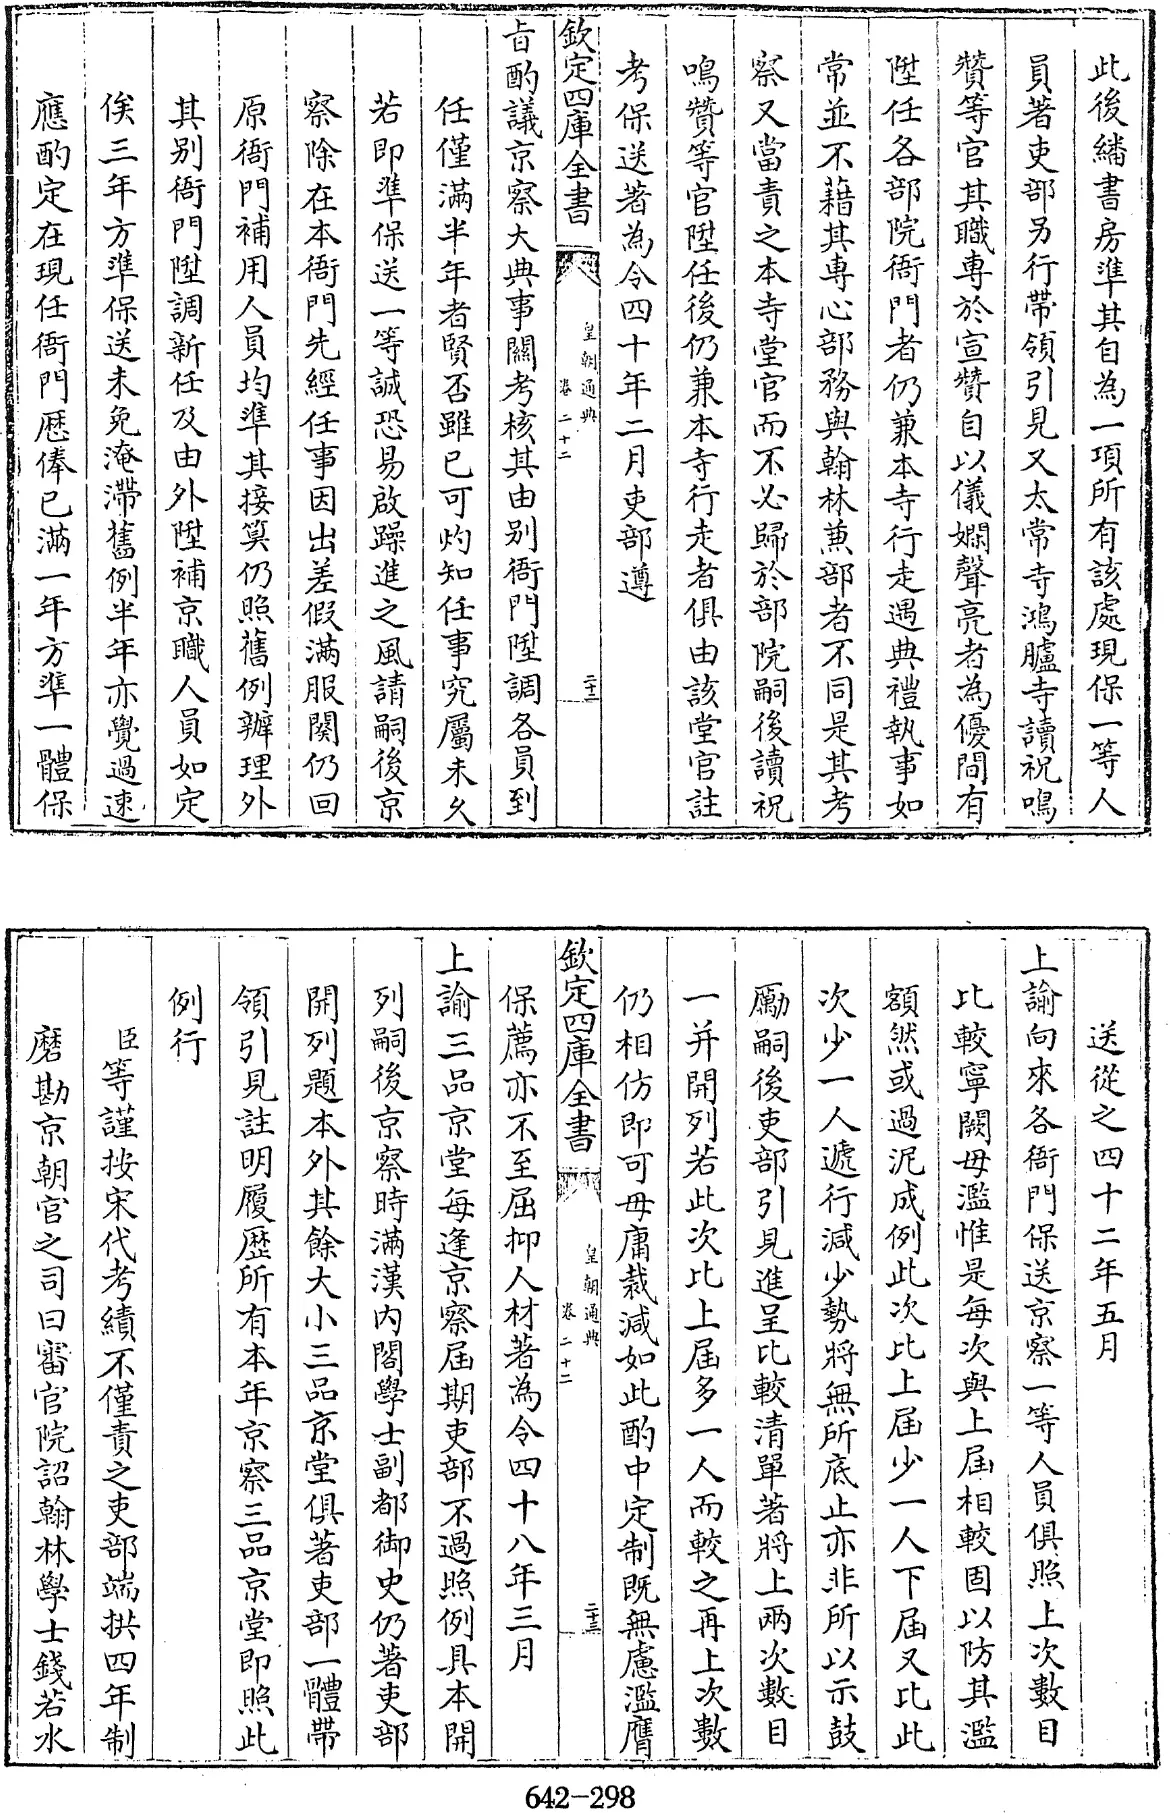 此後繙書房準其自為一項所有該處現保一等人
員著吏部另行帶領引見又太常寺鴻臚寺讀祝鳴
贊等官其職專於宣贊自以儀嫻聲亮者為優間有
陞任各部院衙門者仍兼本寺行走遇典禮執事如
常並不藉其專心部務與翰林兼部者不同是其考
察又當責之本寺堂官而不必歸於部院嗣後讀祝
鳴贊等官陞任後仍兼本寺行走者俱由該堂官註
考保送著為令四十年二月吏部遵
欽定四庫全書
皇朝通典
卷二十二
二十二
旨酌議京察大典事關考核其由别衙門陞調各員到
任僅滿半年者賢否雖已可灼知任事究屬未久
若即準保送一等誠恐易啟躁進之風請嗣後京
察除在本衙門先經任事因出差假滿服闋仍回
原衙門補用人員均準其接算仍照舊例辦理外
其别衙門陞調新任及由外陞補京職人員如定
俟三年方準保送未免淹滯舊例半年亦覺過速
應酌定在現任衙門歷俸已滿一年方準一體保
送從之四十二年五月
上諭向來各衙門保送京察一等人員俱照上次數目
比較寧闕毋濫惟是每次與上屆相較固以防其濫
額然或過泥成例此次比上屆少一人下屆又比此
次少一人遞行減少勢將無所底止亦非所以示鼓
勵嗣後吏部引見進呈比較清單著將上兩次數目
一并開列若此次比上屆多一人而較之再上次數
仍相仿即可毋庸裁減如此酌中定制既無慮濫膺
欽定四庫全書
皇朝通典
卷二十二
二十三
保薦亦不至屈抑人材著為令四十八年三月
上諭三品京堂每逢京察屆期吏部不過照例具本開
列嗣後京察時滿漢內閣學士副都御史仍著吏部
開列題本外其餘大小三品京堂俱著吏部一體帶
領引見註明履歷所有本年京察三品京堂即照此
例行
臣等謹按宋代考績不僅責之吏部端拱四年制
磨勘京朝官之司曰審官院詔翰林學士錢若水
642-298